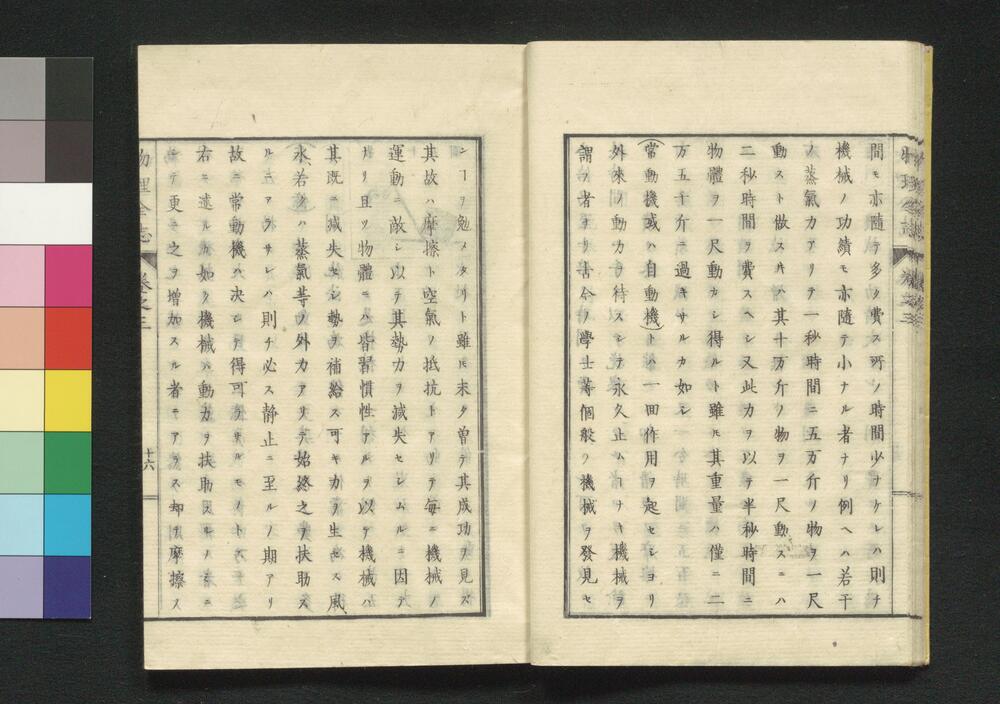 間モ亦隨テ多ク費ス所ノ時間少ナケレハ則チ
機械ノ功績モ亦隨テ小ナル者ナリ例ヘハ若干
ノ蒸氣力アリテ一秒時間ニ五万斤ノ物ヲ一尺
動スト做ス𪜈ハ其十万斤ノ物ヲ一尺動スニハ
二秒時間ヲ費スヘシ又此力ヲ以テ半秒時間ニ
物體ヲ一尺動カシ得ルト雖𪜈其重量ハ僅ニ二
万五千斤ニ過キサルカ如シ
(常動機或ハ自動機)トハ一回作用ヲ起セシヨリ
外來ノ動力ヲ待スシテ永久止ムヿナキ機械ヲ
謂フ者ナリ古今ノ學士等個般ノ機械ヲ發見セ
ンヿヲ勉メタリト雖𪜈未タ曽テ其成功ヲ見ズ
其故ハ摩擦ト空氣ノ抵抗トアリテ毎ニ機械ノ
運動ニ敵シ以テ其勢力ヲ減失セシムルニ因テ
ナリ且ツ物體ニハ皆習慣性アルヲ以テ機械ハ
其既ニ減失セシ勢ヲ補給ス可キ力ヲ生セス風、
水、若クハ蒸氣等ノ外力アリテ始終之ヲ扶助ス
ルニアラサレハ則チ必ス静止ニ至ルノ期アリ
故ニ常動機ハ決シテ得可ラサルモノトス
右ニ述ルカ如ク機械ハ動力ヲ扶助スルノミニ
シテ更ニ之ヲ増加スル者ニアラス却テ摩擦ス
物理全志 卷之三
十六